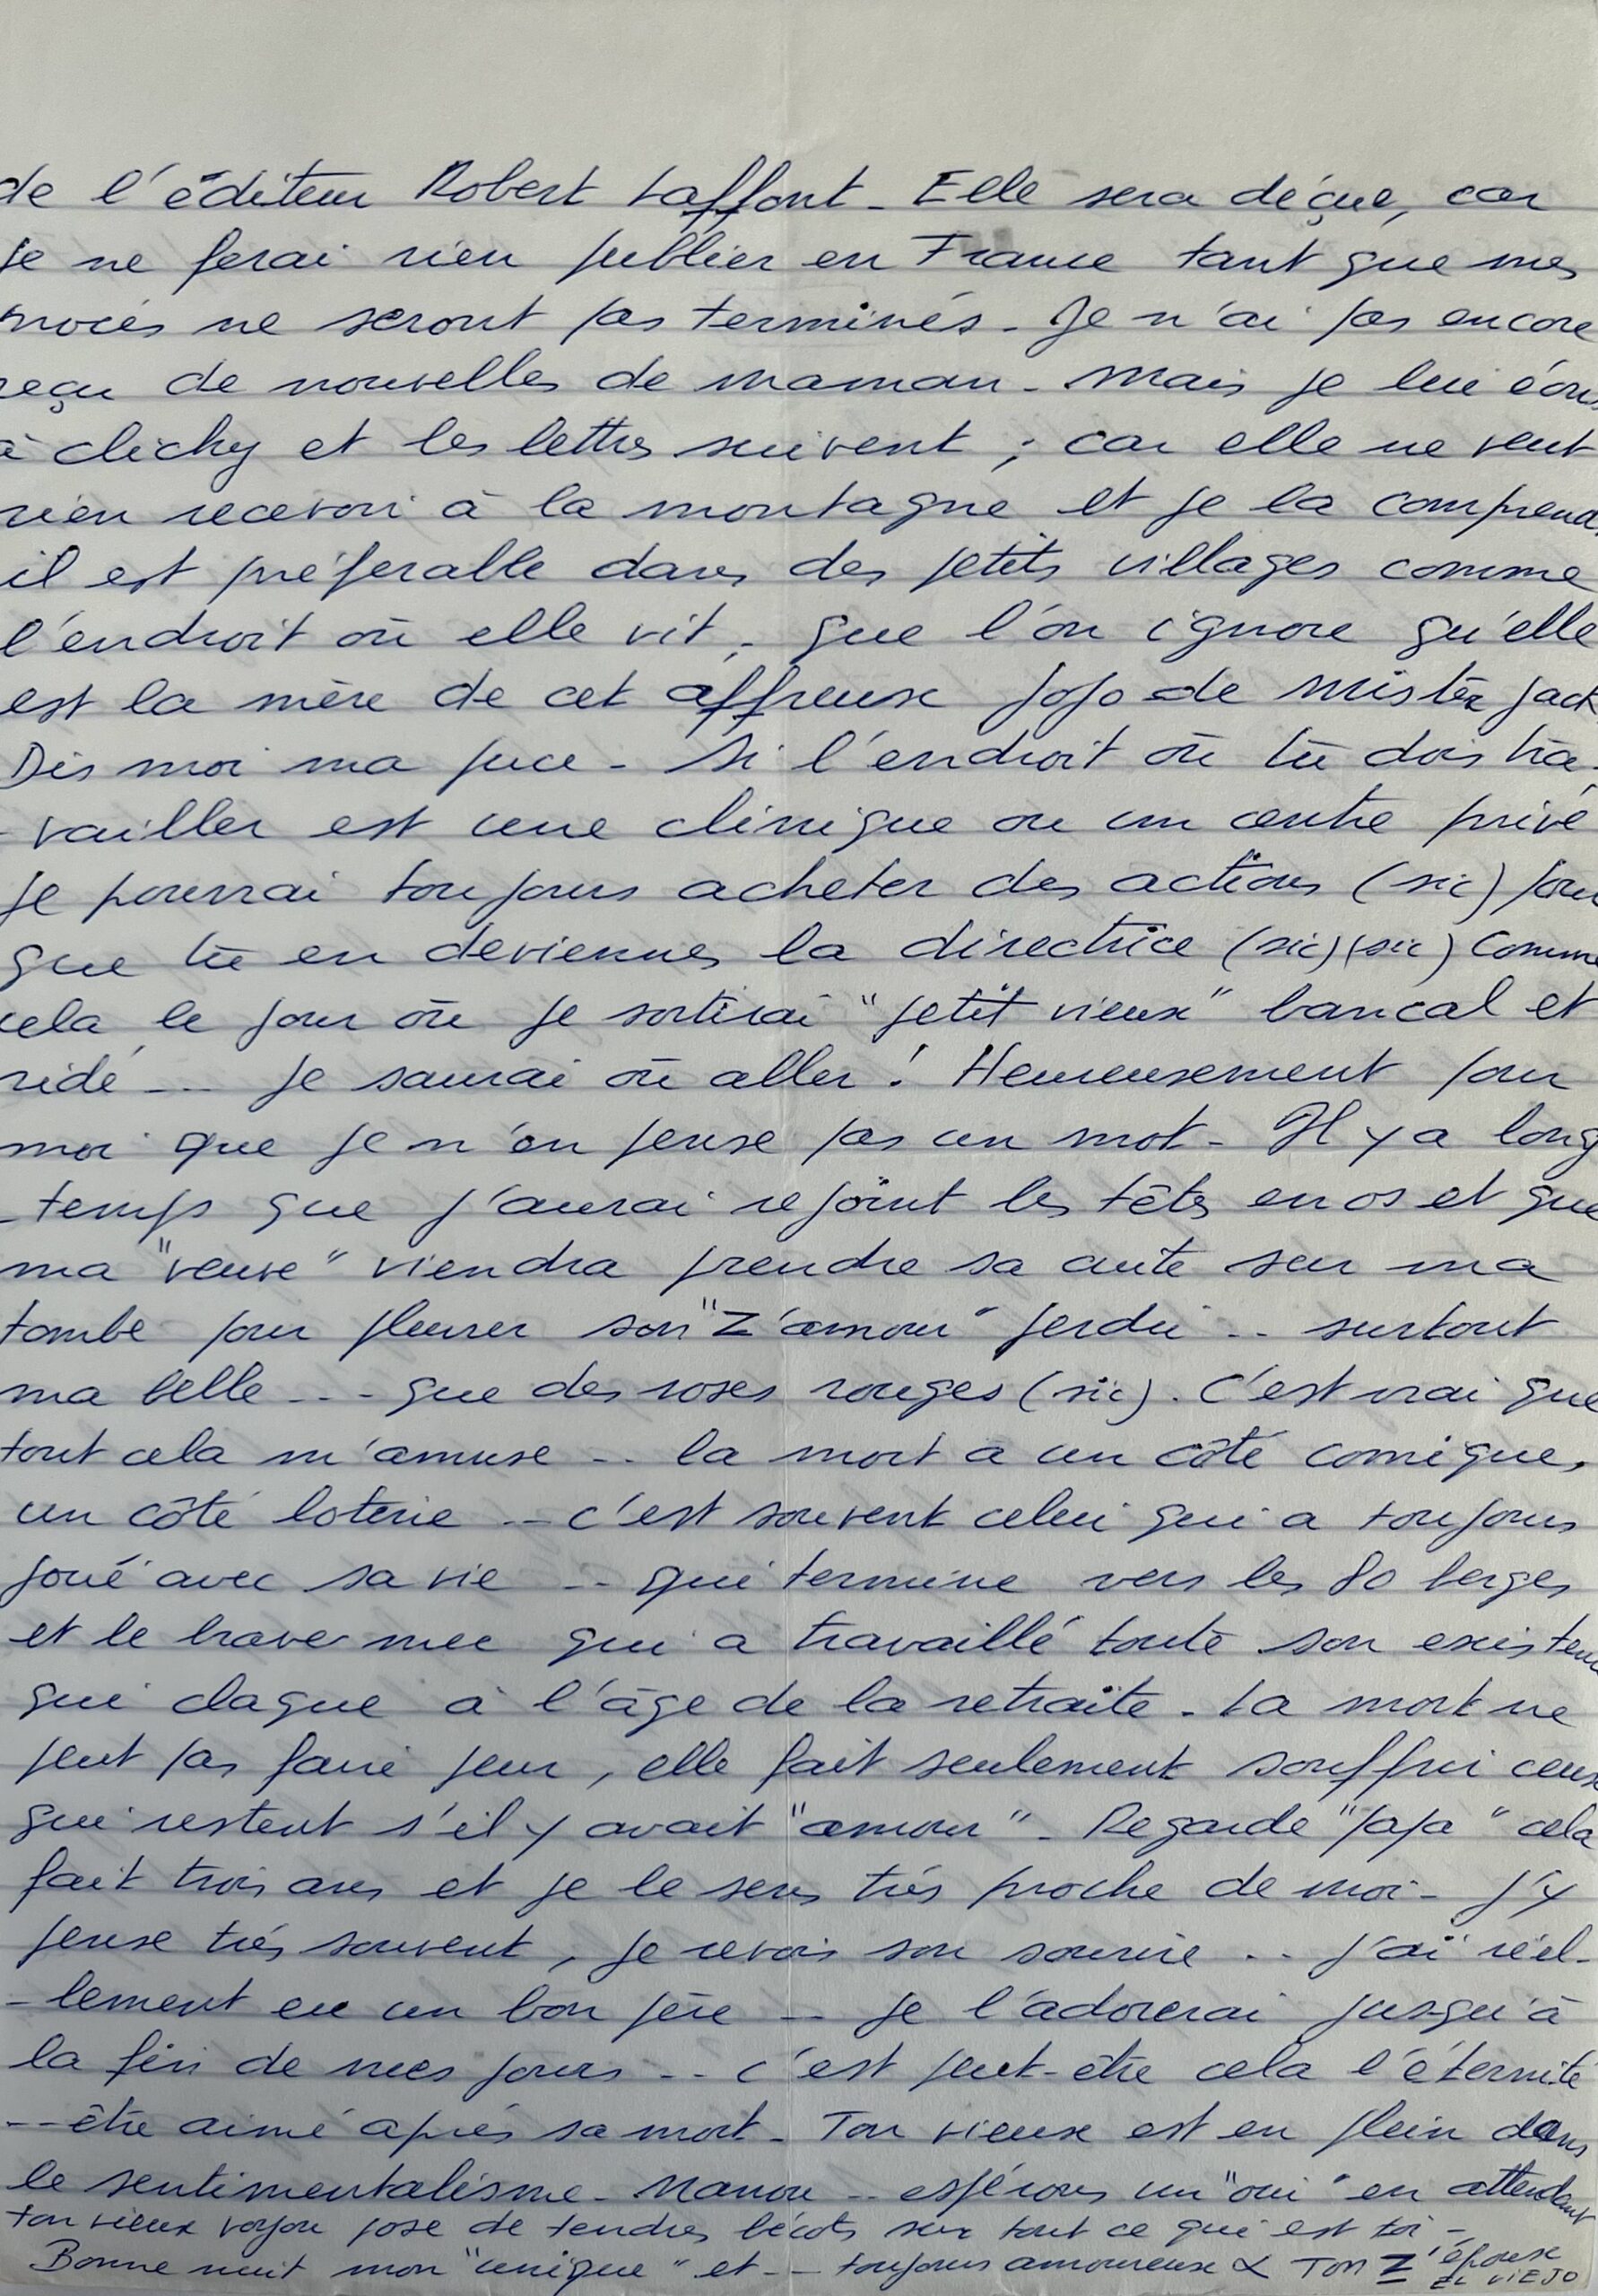 de l'éditeur Robert Laffont - Elle sera déçue, car
je ne ferai rien publier en France tant que mes
procès ne seront pas terminés - Je n'ai pas encore
reçu de nouvelles de maman - mais je lui écris
à clichy et les lettres suivent ; car elle ne veut
rien recevoir à la montagne et je la comprends
il est préférable dans des petits villages comme
l'endroit où elle vit, - que l'on ignore qu'elle
est la mère de cet affreuse jojo de Mister Jack
Dis moi ma puce - Si l'endroit où tu dois tra-
-vailler est une clinique ou un centre privé
je pourrai toujours acheter des actions (sic) pour
que tu en deviennes la directrice (sic) (sic) Comme
cela le jour où je sortirai "petit vieux" bancal et
ridé -- je saurai où aller ! Heureusement pour
moi que je n'en pense pas un mot - Il y a long
-temps que j'aurai rejoint les têtes en os et que
ma "veuve" viendra prendre sa cuite sur ma
tombe pour pleurer son "Z'amour" perdu .. surtout
ma belle --- que des roses rouges (sic). C'est vrai que
tout cela m'amuse -- la mort a un côté comique,
un côté loterie -- c'est souvent celui qui a toujours
joué avec sa vie -- qui termine vers les 80 berges
et le brave mec qui a travaillé toute son existence
qui claque à l'âge de la retraite - La mort ne
peut pas faire peur, elle fait seulement souffrir ceux
qui restent s'il y avait "amour" - Regarde "papa" cela
fait trois ans et je le sens très proche de moi - J'y
pense très souvent, je revois son sourire .. j'ai réel-
-lement eu un bon père -- je l'adorerai jusqu'à
la fin de mes jours -- c'est peut-être cela l'éternité
-- être aimé après sa mort - Ton vieux est en plein dans
le sentimentalisme - Nanou -- espérons un "oui" en attendant
ton vieux voyou pose de tendres bécots sur tout ce qui est toi -
Bonne nuit mon "unique" et -- toujours amoureuse & Ton Z'épouse
El viejo